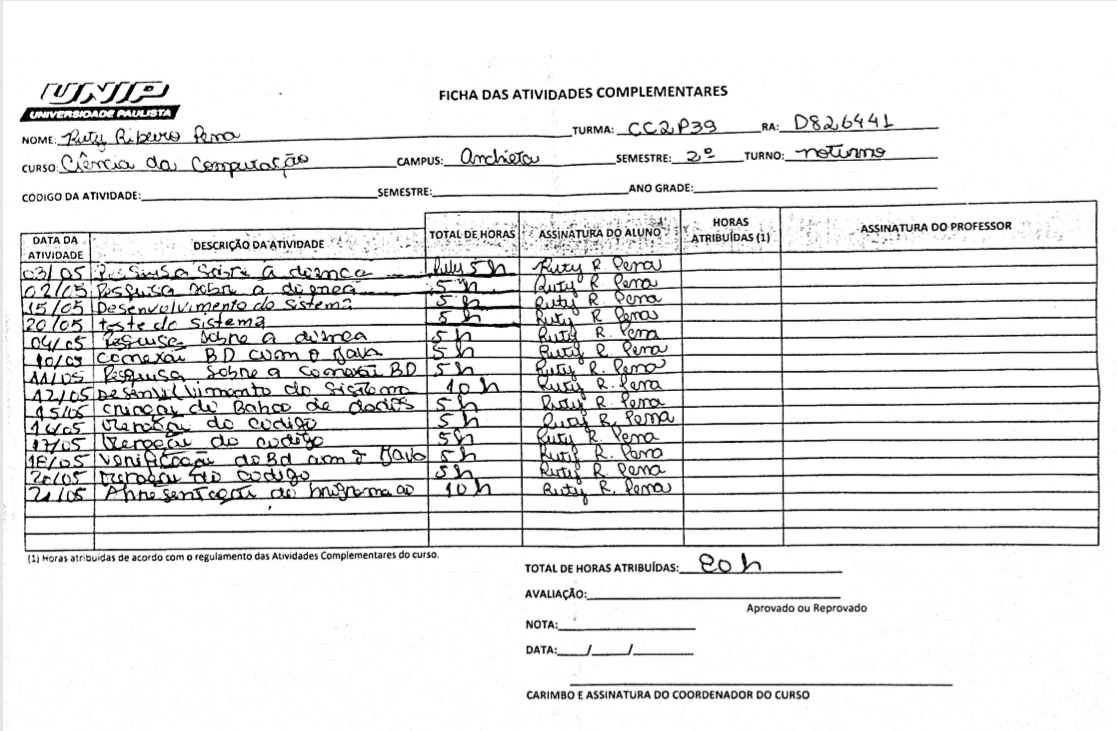 UNIP
UNIVERSIDADE PAULISTA
FICHA DAS ATIVIDADES COMPLEMENTARES
NOME: Ruty Ribeiro Pena TURMA: CC2P39 RA: D826441
CURSO: Ciência da Computação CAMPUS: Anchieta SEMESTRE: 2º TURNO: noturno
CÓDIGO DA ATIVIDADE: SEMESTRE: ANO GRADE:
DATA DA ATIVIDADE DESCRIÇÃO DA ATIVIDADE TOTAL DE HORAS ASSINATURA DO ALUNO HORAS ATRIBUÍDAS (1) ASSINATURA DO PROFESSOR
03/05 Pesquisa sobre a doença Ruty 5h Ruty R Pena
02/05 Pesquisa sobre a doença 5h Ruty R. Pena
15/05 Desenvolvimento do Sistema 5h Ruty R. Pena
20/05 teste do sistema 5h Ruty R. Pena
04/05 sobre a doença 5h Ruty R. Pena
10/05 BD com o Java 5h Ruty R. Pena
11/05 Pesquisa sobre a BD 5h Ruty R. Pena
12/05 do Sistema 10h Ruty R. Pena
15/05 de Banco de dados 5h Ruty R. Pena
14/05 do codigo 5h Ruty R. Pena
17/05 do codigo 5h Ruty R. Pena
18/05 do Bd com o Java 5h Ruty R. Pena
20/05 codigo 5h Ruty R. Pena
21/05 10h Ruty R. Pena
(1) Horas atribuídas de acordo com o regulamento das Atividades Complementares do curso.
TOTAL DE HORAS ATRIBUÍDAS: 80h
AVALIAÇÃO:
Aprovado ou Reprovado
NOTA:
DATA: / /
CARIMBO E ASSINATURA DO COORDENADOR DO CURSO